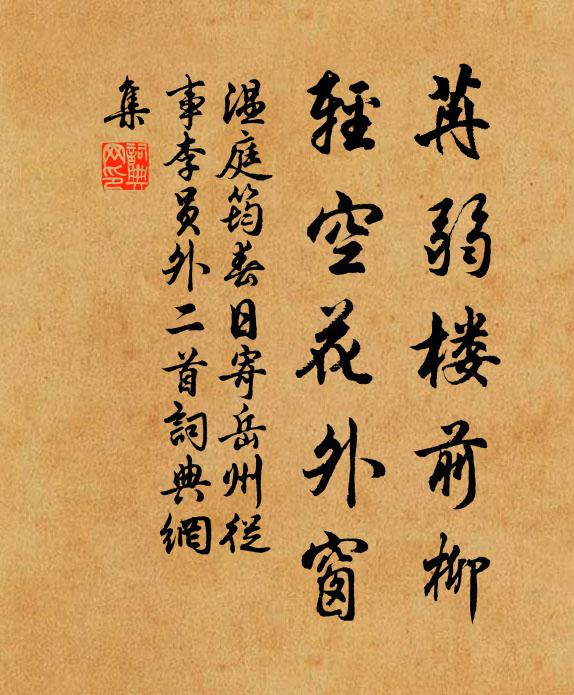 苒弱楼前柳
輕空花外窗
温庭筠春日寄岳州從
事李员外二首詞典網
集
詞典
网印